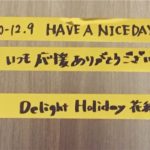 -12.9 HAVE A NICE DAY
いつも応援ありがとうござい
Delight Holiday 花